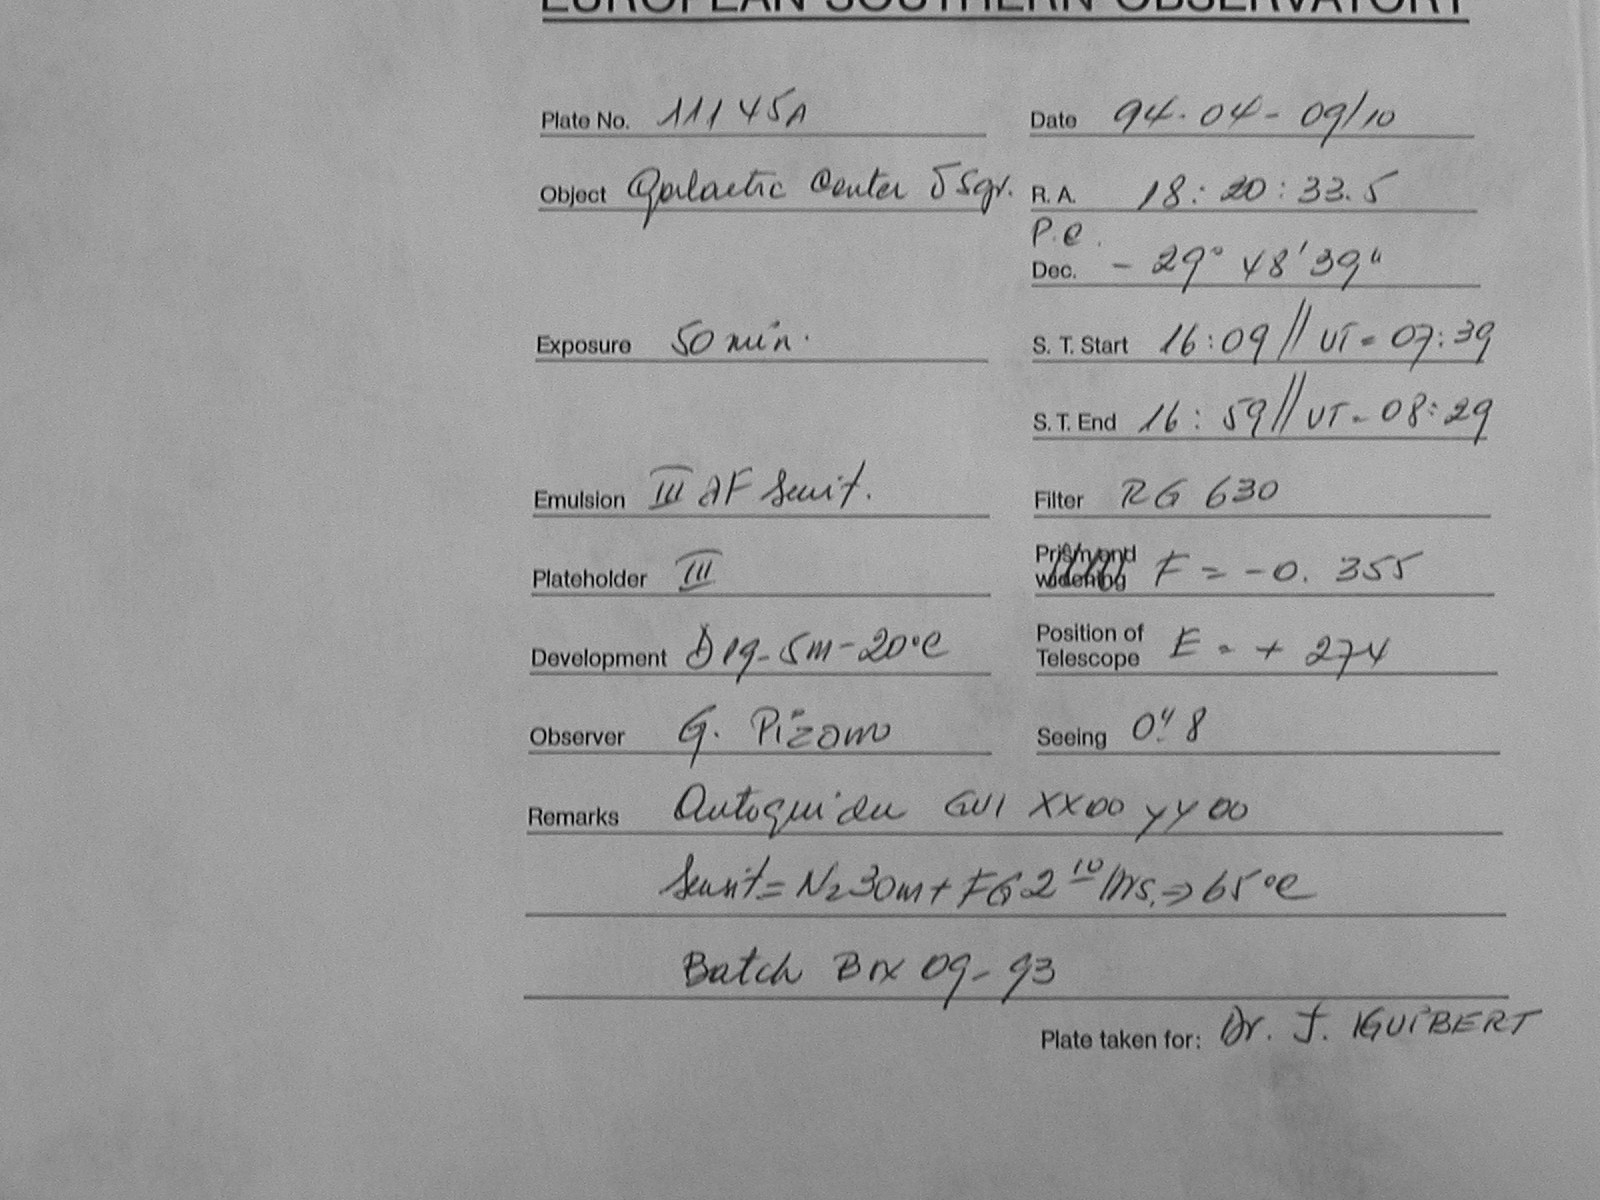 EUROPEAN SOUTHERN OBSERVATORY
Plate No. 11145A Date 94-04-09/10
Object Galactic Center δ Sgr. R. A. 18:20:33.5
P.e.
Dec. -29° 48' 39"
Exposure 50 min. S. T. Start 16:09 // UT = 07:39
S. T. End 16:59 // UT = 08:29
Emulsion III aF Sensit. Filter RG 630
Plateholder III Prism and widening F = -0.355
Development D19-5m-20°C Position of Telescope E = + 274
Observer G. Pizarro Seeing 0".8
Remarks Autoguider GUI XX00 YY00
Sensit = N2 30m + FG 2 10/hrs. ⇒ 65°C
Batch Box 09-93
Plate taken for: Dr. J. GUIBERT